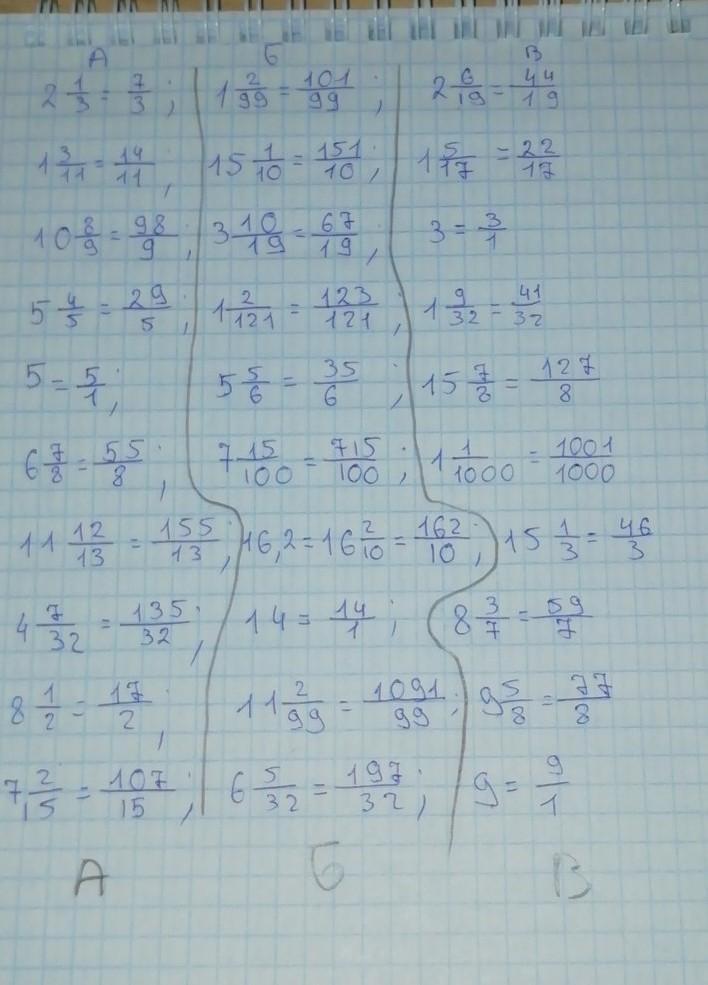 А Б В
2 1/3 = 7/3; 1 2/99 = 101/99; 2 6/19 = 44/19
1 3/11 = 14/11; 15 1/10 = 151/10; 1 5/17 = 22/17
10 8/9 = 98/9; 3 10/19 = 67/19; 3 = 3/1
5 4/5 = 29/5; 1 2/121 = 123/121; 1 9/32 = 41/32
5 = 5/1; 5 5/6 = 35/6; 15 7/8 = 127/8
6 7/8 = 55/8; 7 15/100 = 715/100; 1 1/1000 = 1001/1000
11 12/13 = 155/13; 16,2 = 16 2/10 = 162/10; 15 1/3 = 46/3
4 7/32 = 135/32; 14 = 14/1; 8 3/7 = 59/7
8 1/2 = 17/2; 11 2/99 = 1091/99; 9 5/8 = 77/8
7 2/15 = 107/15; 6 5/32 = 197/32; 9 = 9/1
А Б В